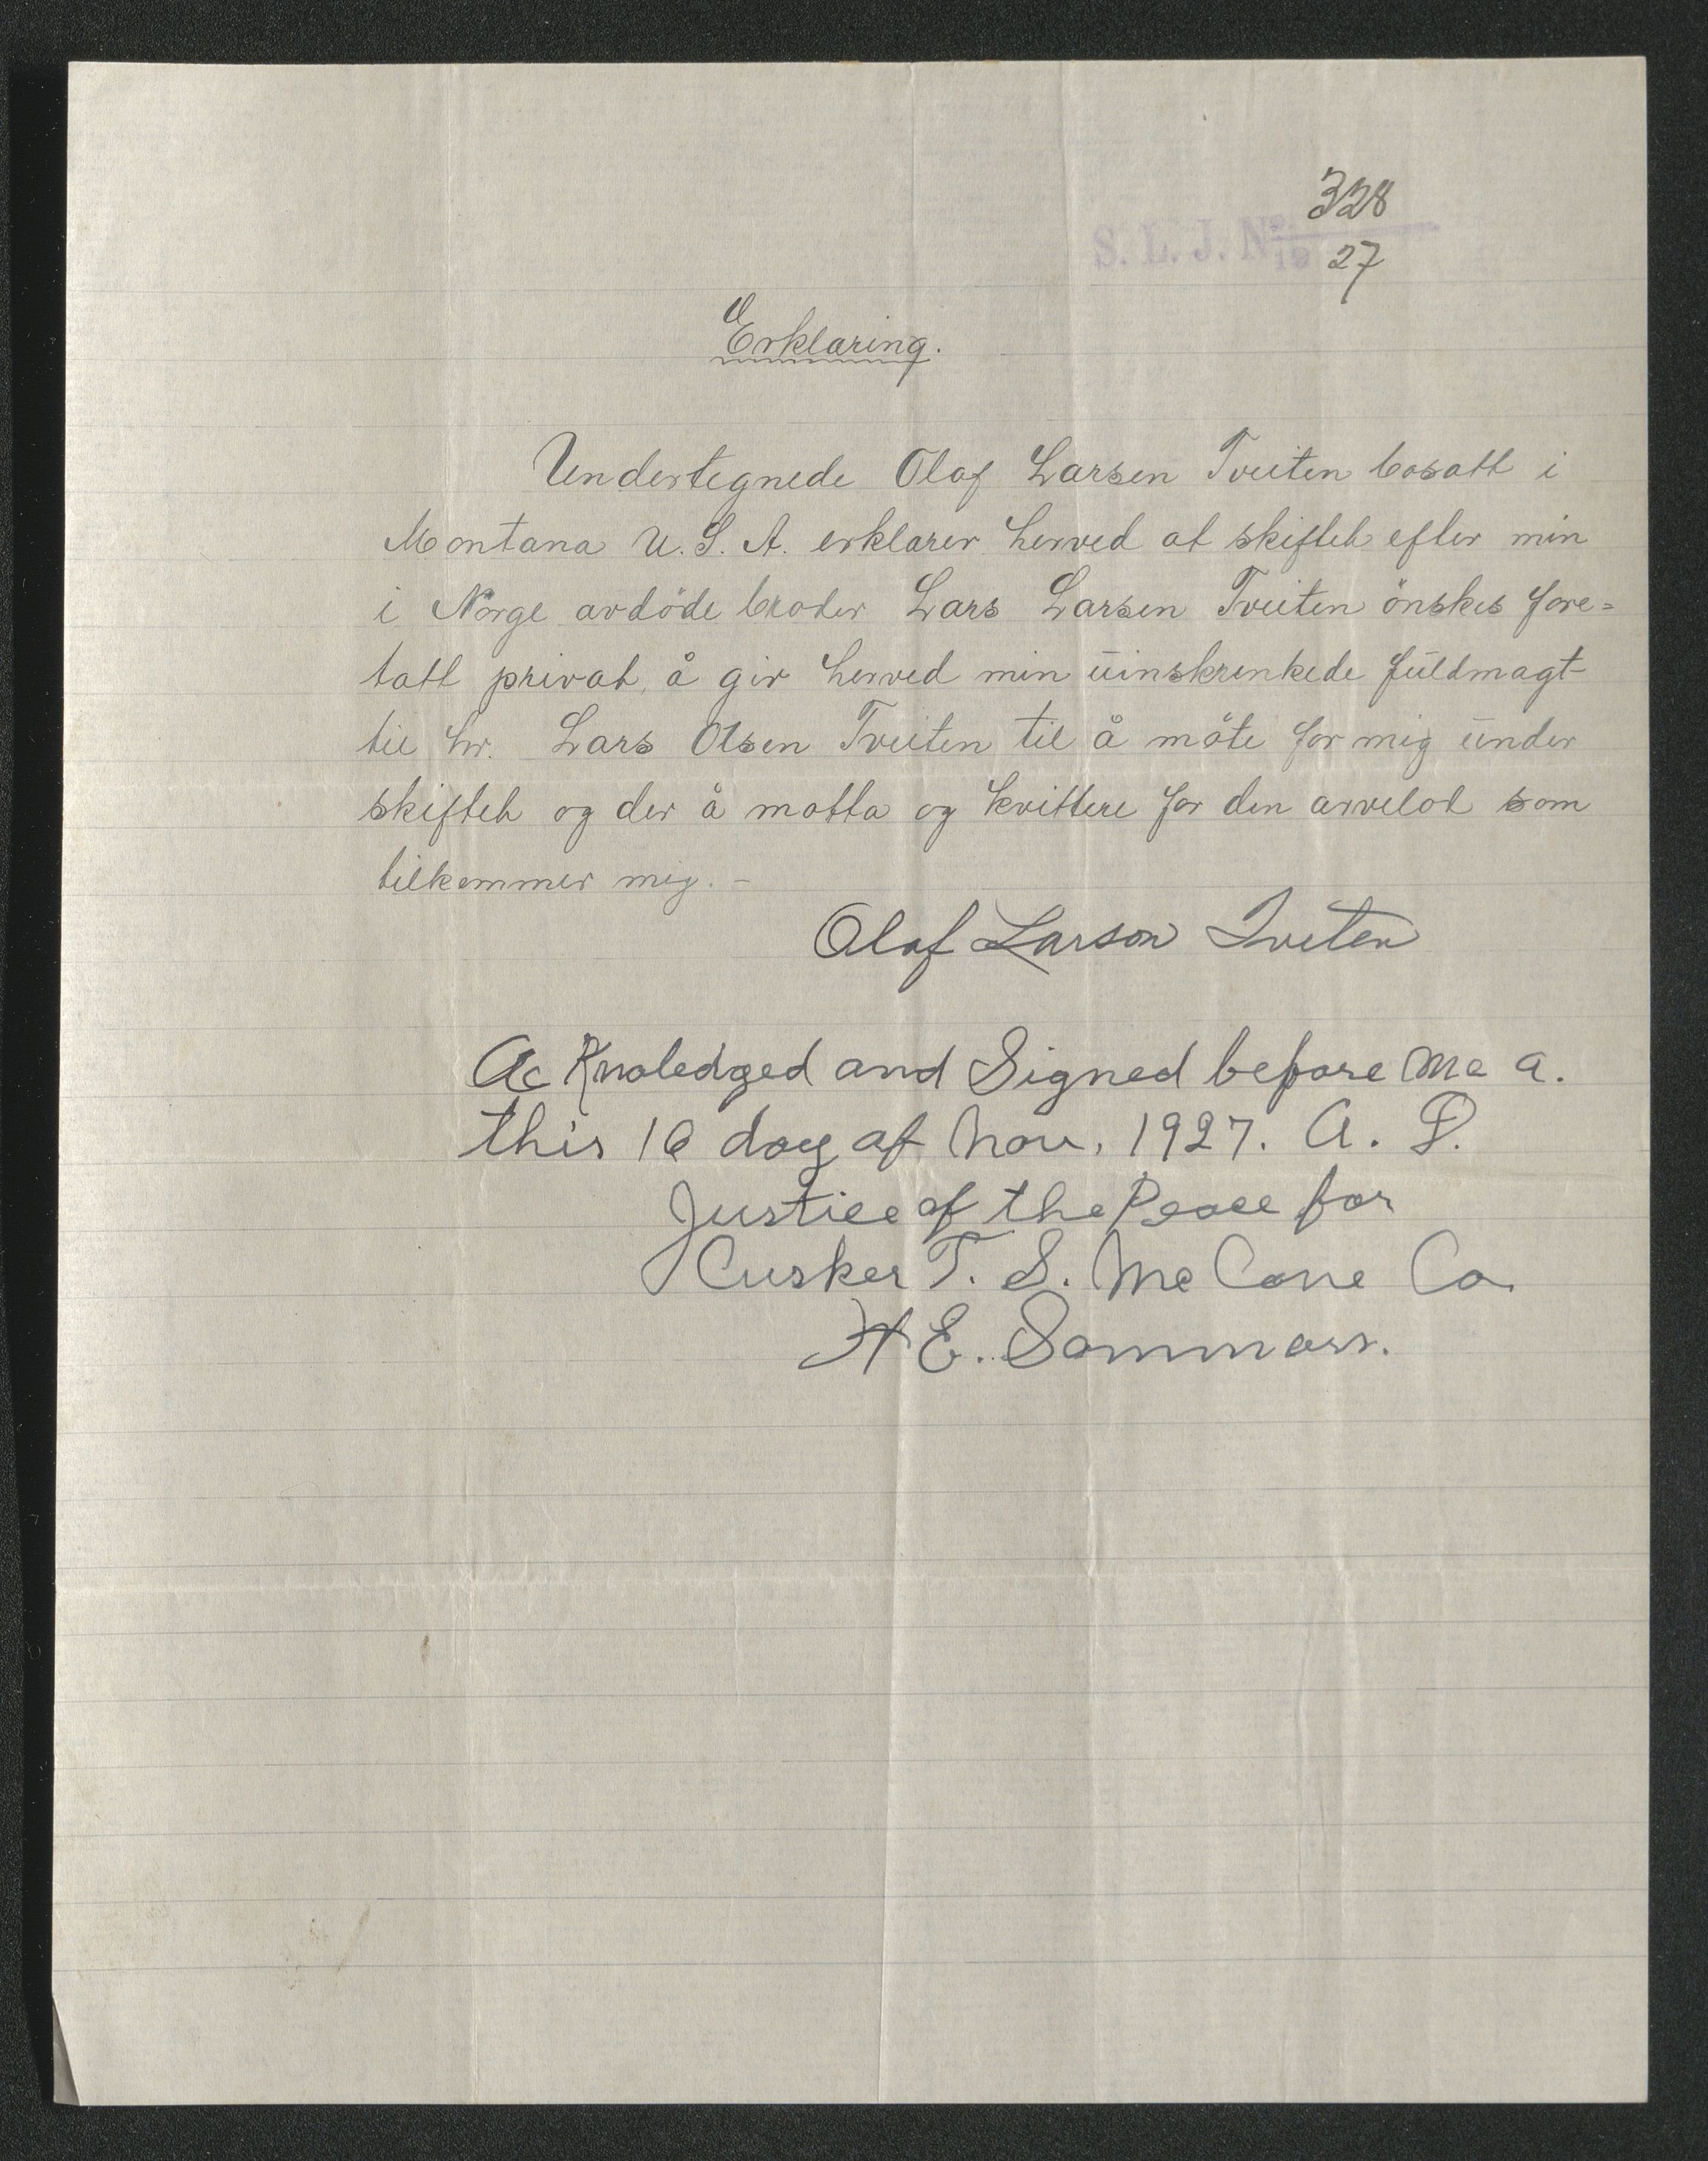 328
S. L. J. No
19 27
Erklæring.
Undertegnede Olaf Larsen Tveiten bosatt i
Montana U. S. A. erklærer herved at skiftet efter min
i Norge avdöde broder Lars Larsen Tveiten önskes fore=
tatt privat, å gir herved min uinskrenkede fuldmagt
til hr. Lars Olsen Tveiten til å möte for mig under
skiftet og der å motta og kvittere for den arvelot som
tilkommer mig. -
Olaf Larson Tveten
Ac Knoledged and Signed before Me a.
this 16 day of Nov. 1927. A. D.
Justice of the Peace for
Cusker T. S. Mc Cone Co.
H E. Sommars.